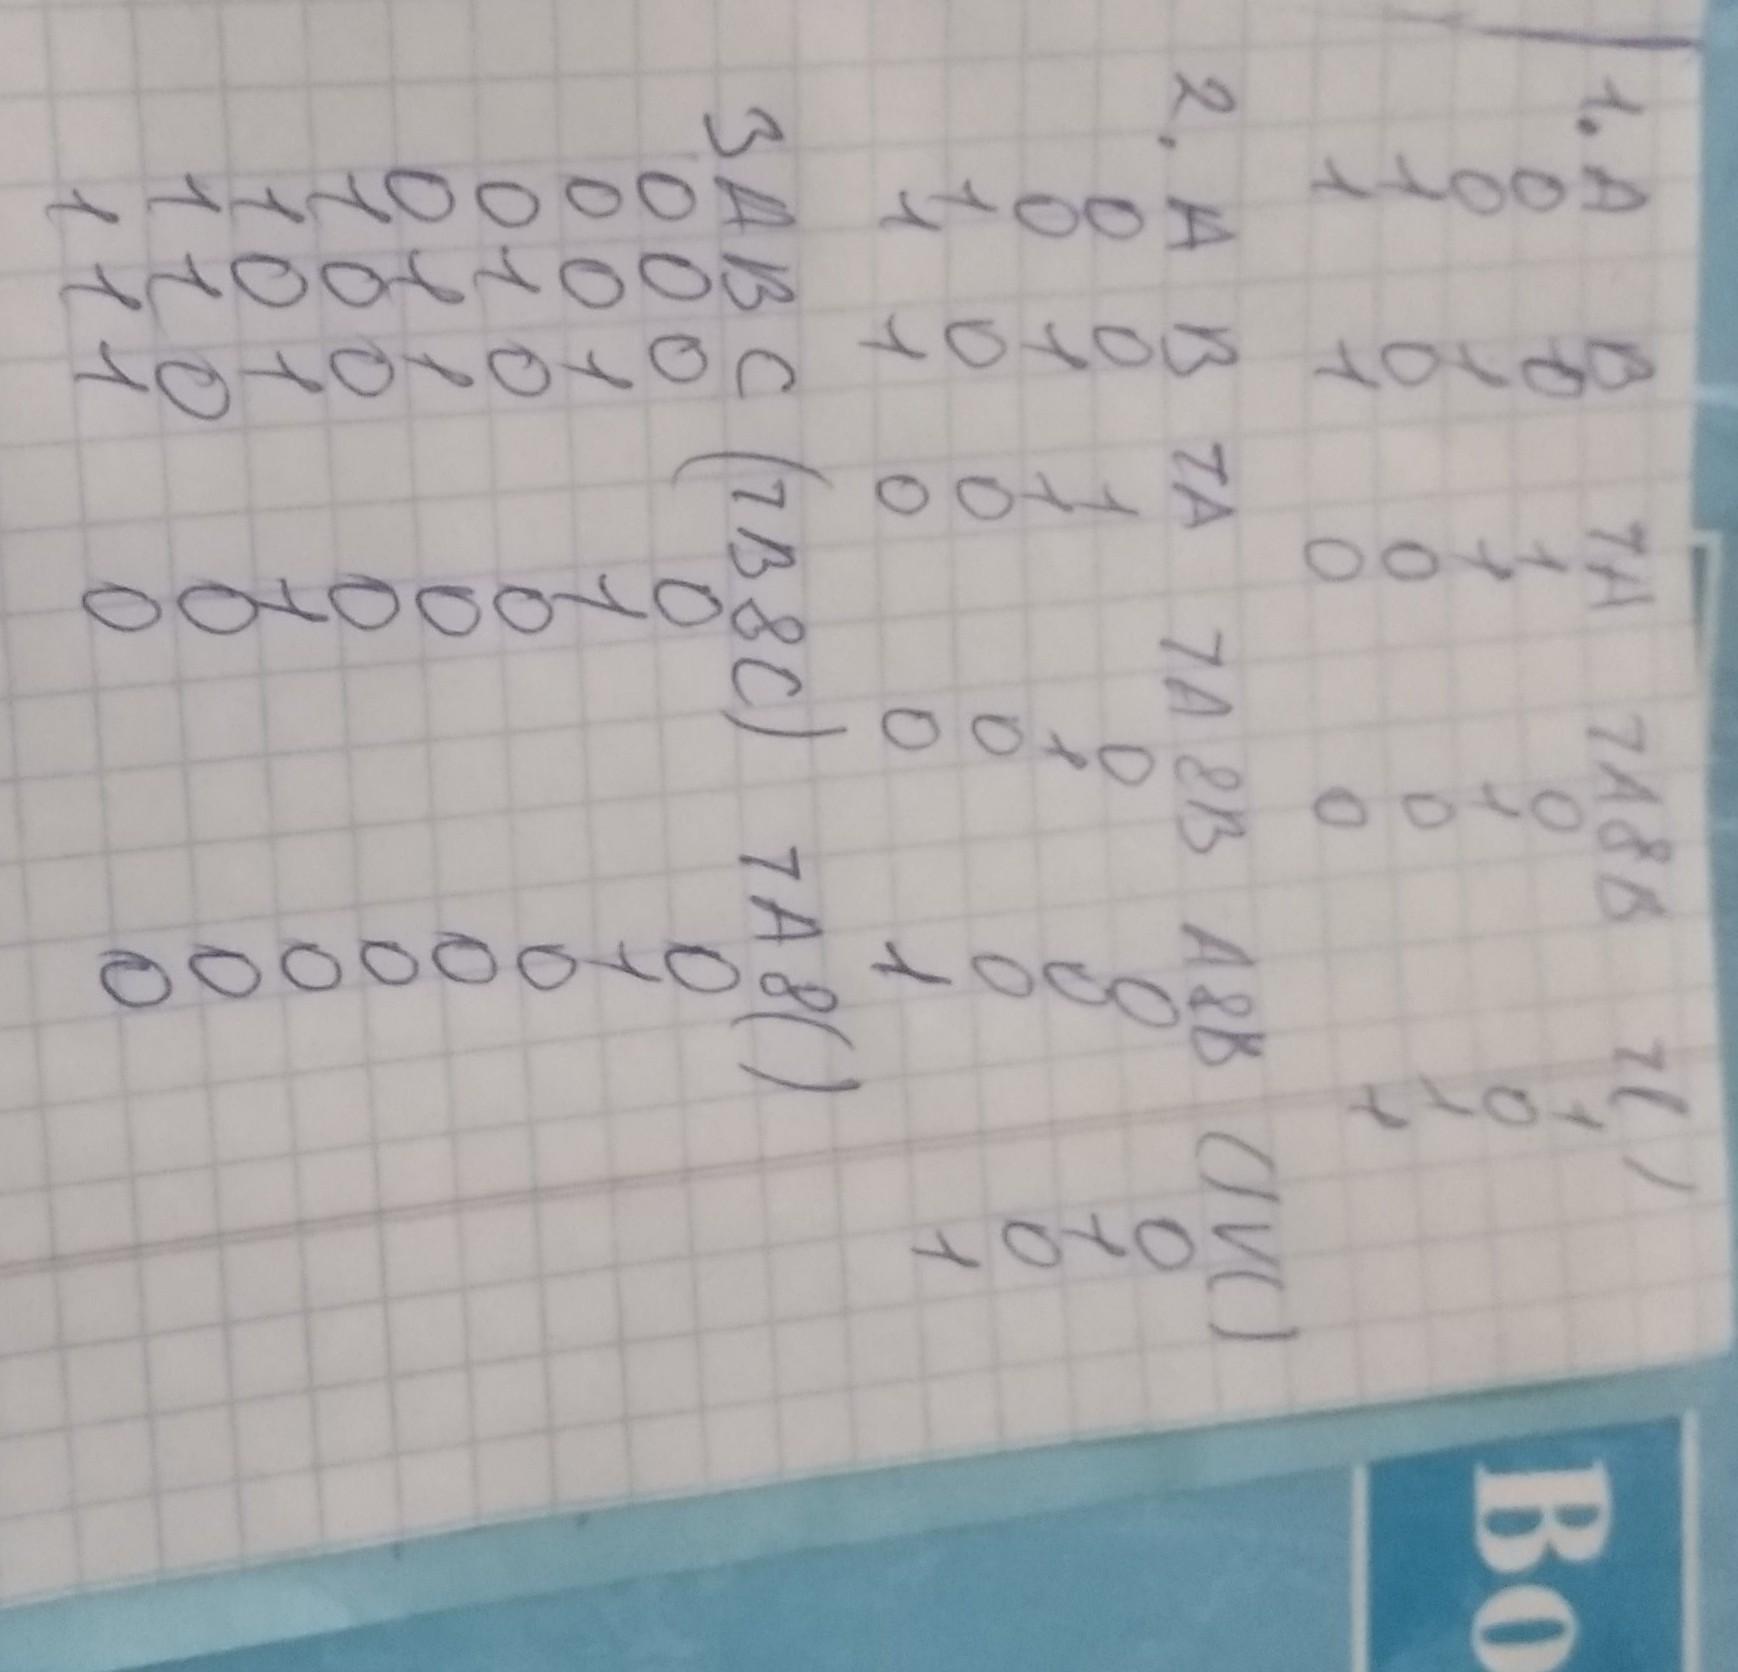 1. A B 7A 7A8B 7( )
0 0 1 0 1
0 1 1 1 0
1 0 0 0 1
1 1 0 0 1
2. A B 7A 7A8B A8B ( )V( )
0 0 1 0 0 0
0 1 1 1 0 1
1 0 0 0 0 0
1 1 0 0 1 1
3 A B C (7B8C) 7A8( )
0 0 0 0 0
0 0 1 1 1
0 1 0 0 0
0 1 1 0 0
1 0 0 0 0
1 0 1 1 0
1 1 0 0 0
1 1 1 0 0
BO